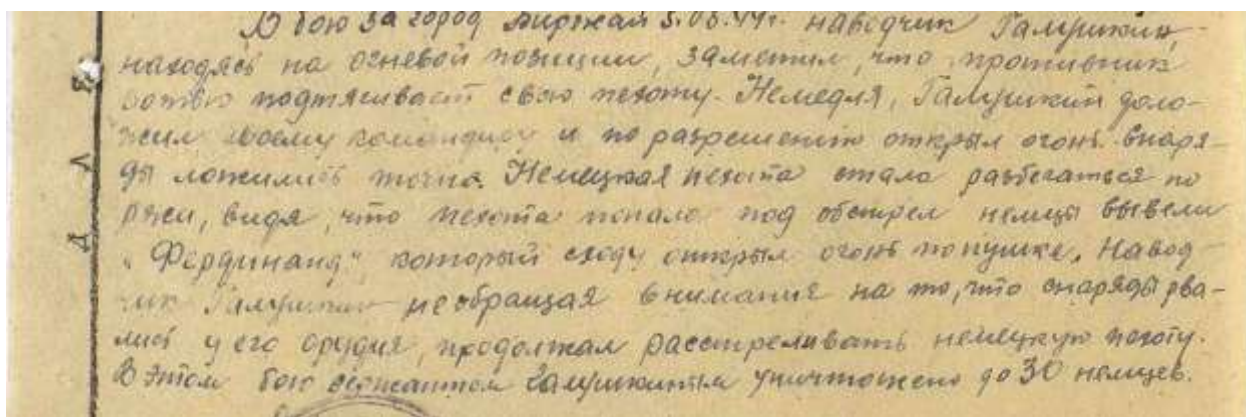 В бою за город Биржай 5.08.44г. наводчик Галушкин,
находясь на огневой позиции, заметил, что противник
подтягивает свою пехоту. Немедля, Галушкин доло-
жил своему командиру и по разрешению открыл огонь. Снаря-
ды ложились точно. Немецкая пехота стала разбегаться по
ржи, видя, что пехота попала под обстрел немцы вывели
"Фердинанд", который сходу открыл огонь по пушке. Навод-
чик Галушкин не обращая внимания на то, что снаряды рва-
лись у его орудия, продолжал расстреливать немецкую пехоту.
В этом бою сержантом Галушкиным уничтожено до 30 немцев.